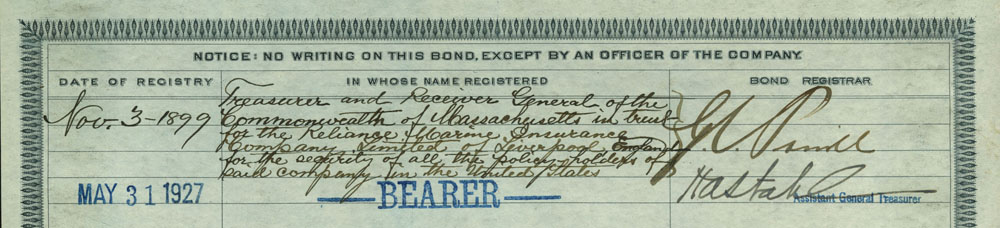 NOTICE: NO WRITING ON THIS BOND, EXCEPT BY AN OFFICER OF THE COMPANY.
DATE OF REGISTRY IN WHOSE NAME REGISTERED BOND REGISTRAR
Nov. 3-1899
Treasurer and Receiver General of the
Commonwealth of Massachusetts in trust
for the Reliance Marine Insurance
Company Limited of Liverpool England
for the security of all the policy holders of
said company in the United States
MAY 31 1927 BEARER
Assistant General Treasurer